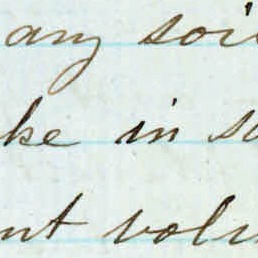 any soi
ke in so
nt volu